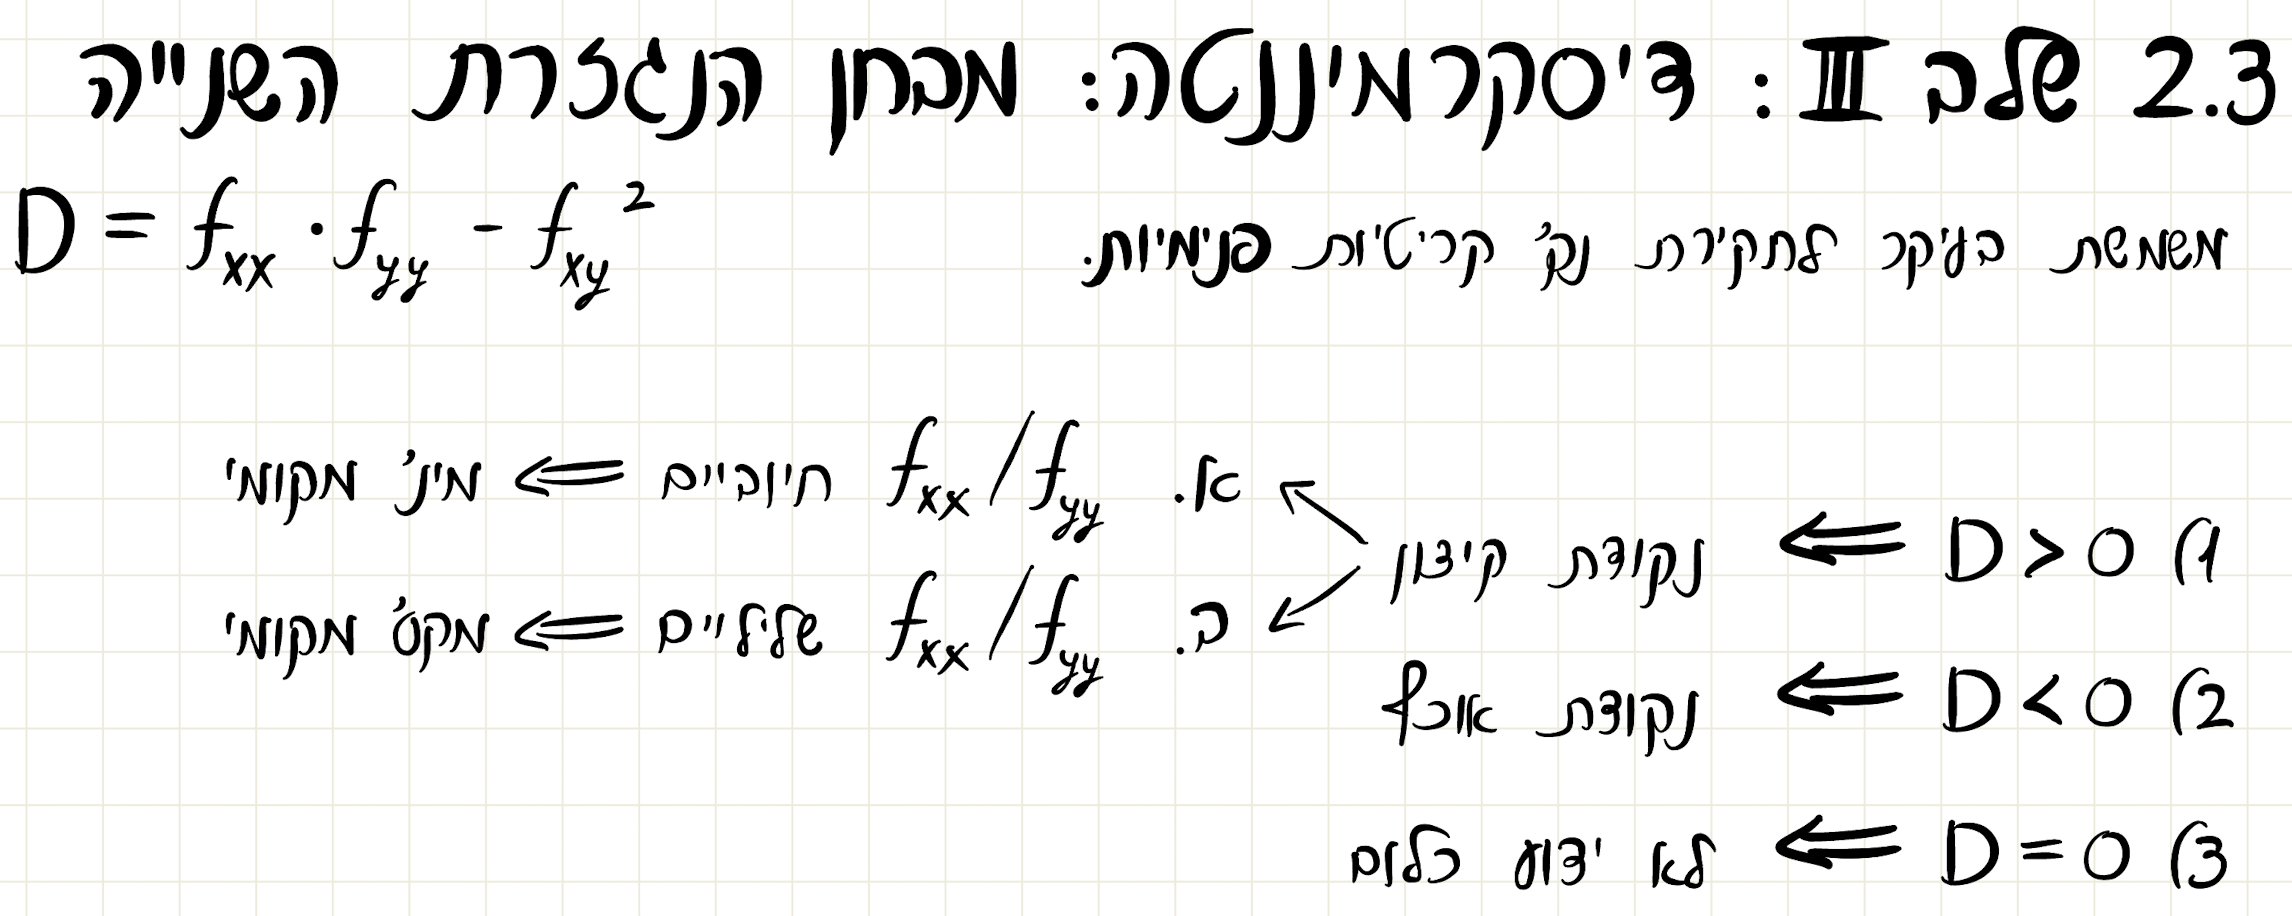 2.3 שלב III: דיסקרמיננטה: מבחן הנגזרת השנייה
משמשת בעיקר לחקירת נק' קריטיות פנימיות.
D = fxx · fyy - fxy²
1) D > 0 ⇐ נקודת קיצון
א. fxx/fyy חיוביים ⇐ מינ' מקומי
ב. fxx/fyy שליליים ⇐ מקס' מקומי
2) D < 0 ⇐ נקודת אוכף
3) D = 0 ⇐ לא ידוע כלום